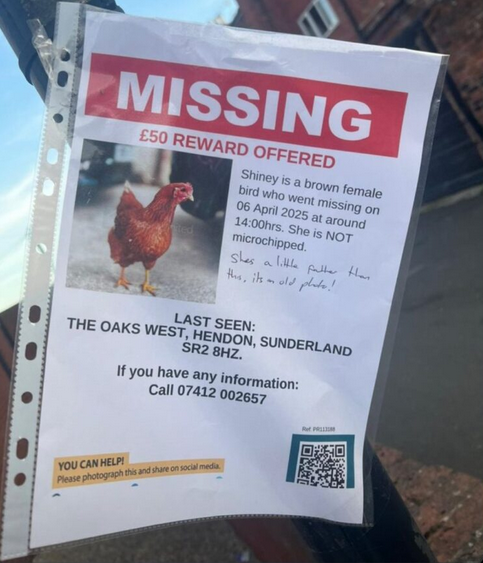 MISSING
£50 REWARD OFFERED
Shiney is a brown female
bird who went missing on
06 April 2025 at around
14:00hrs. She is NOT
microchipped.
Shes a little fatter than
this, its an old photo!
LAST SEEN:
THE OAKS WEST, HENDON, SUNDERLAND
SR2 8HZ.
If you have any information:
Call 07412 002657
YOU CAN HELP!
Please photograph this and share on social media.